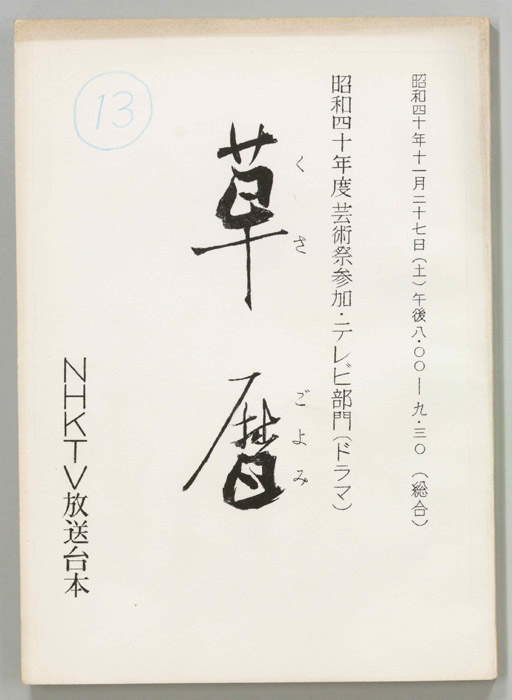 昭和四十年十一月二十七日(土)午後八・〇〇―九・三〇 (総合)
昭和四十年度芸術祭参加・テレビ部門(ドラマ)
くさ ごよみ
草暦
NHKTV放送台本
13